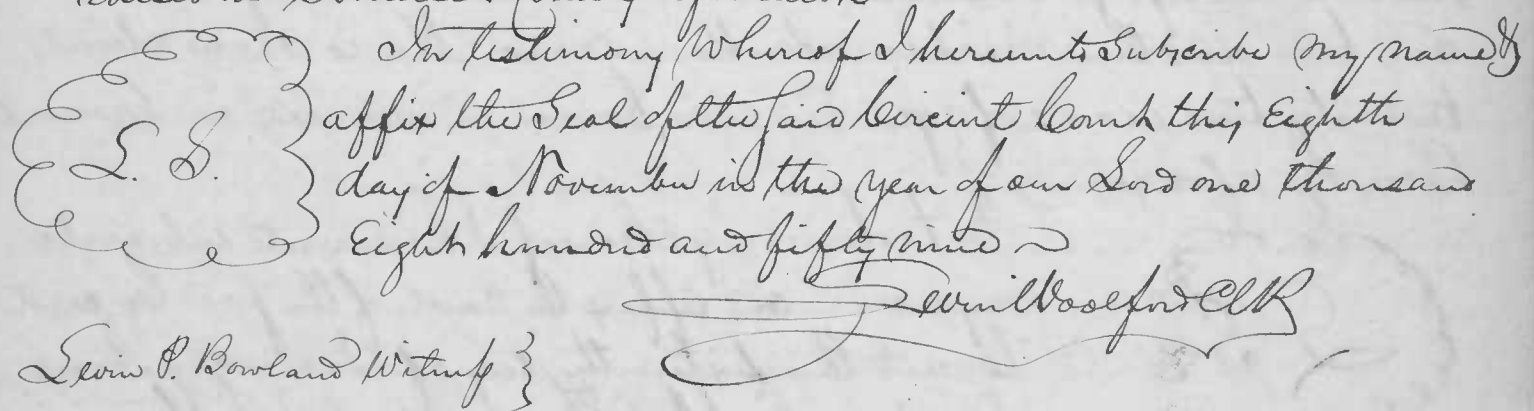 In testimony Whereof I hereunto Subscribe my name &
affix the Seal of the Said Circuit Court this Eighth
L. S.
day of November in the year of our Lord one thousand
Eight hundred and fifty nine
Levin Woolford Clk
Levin P. Bowland Witness